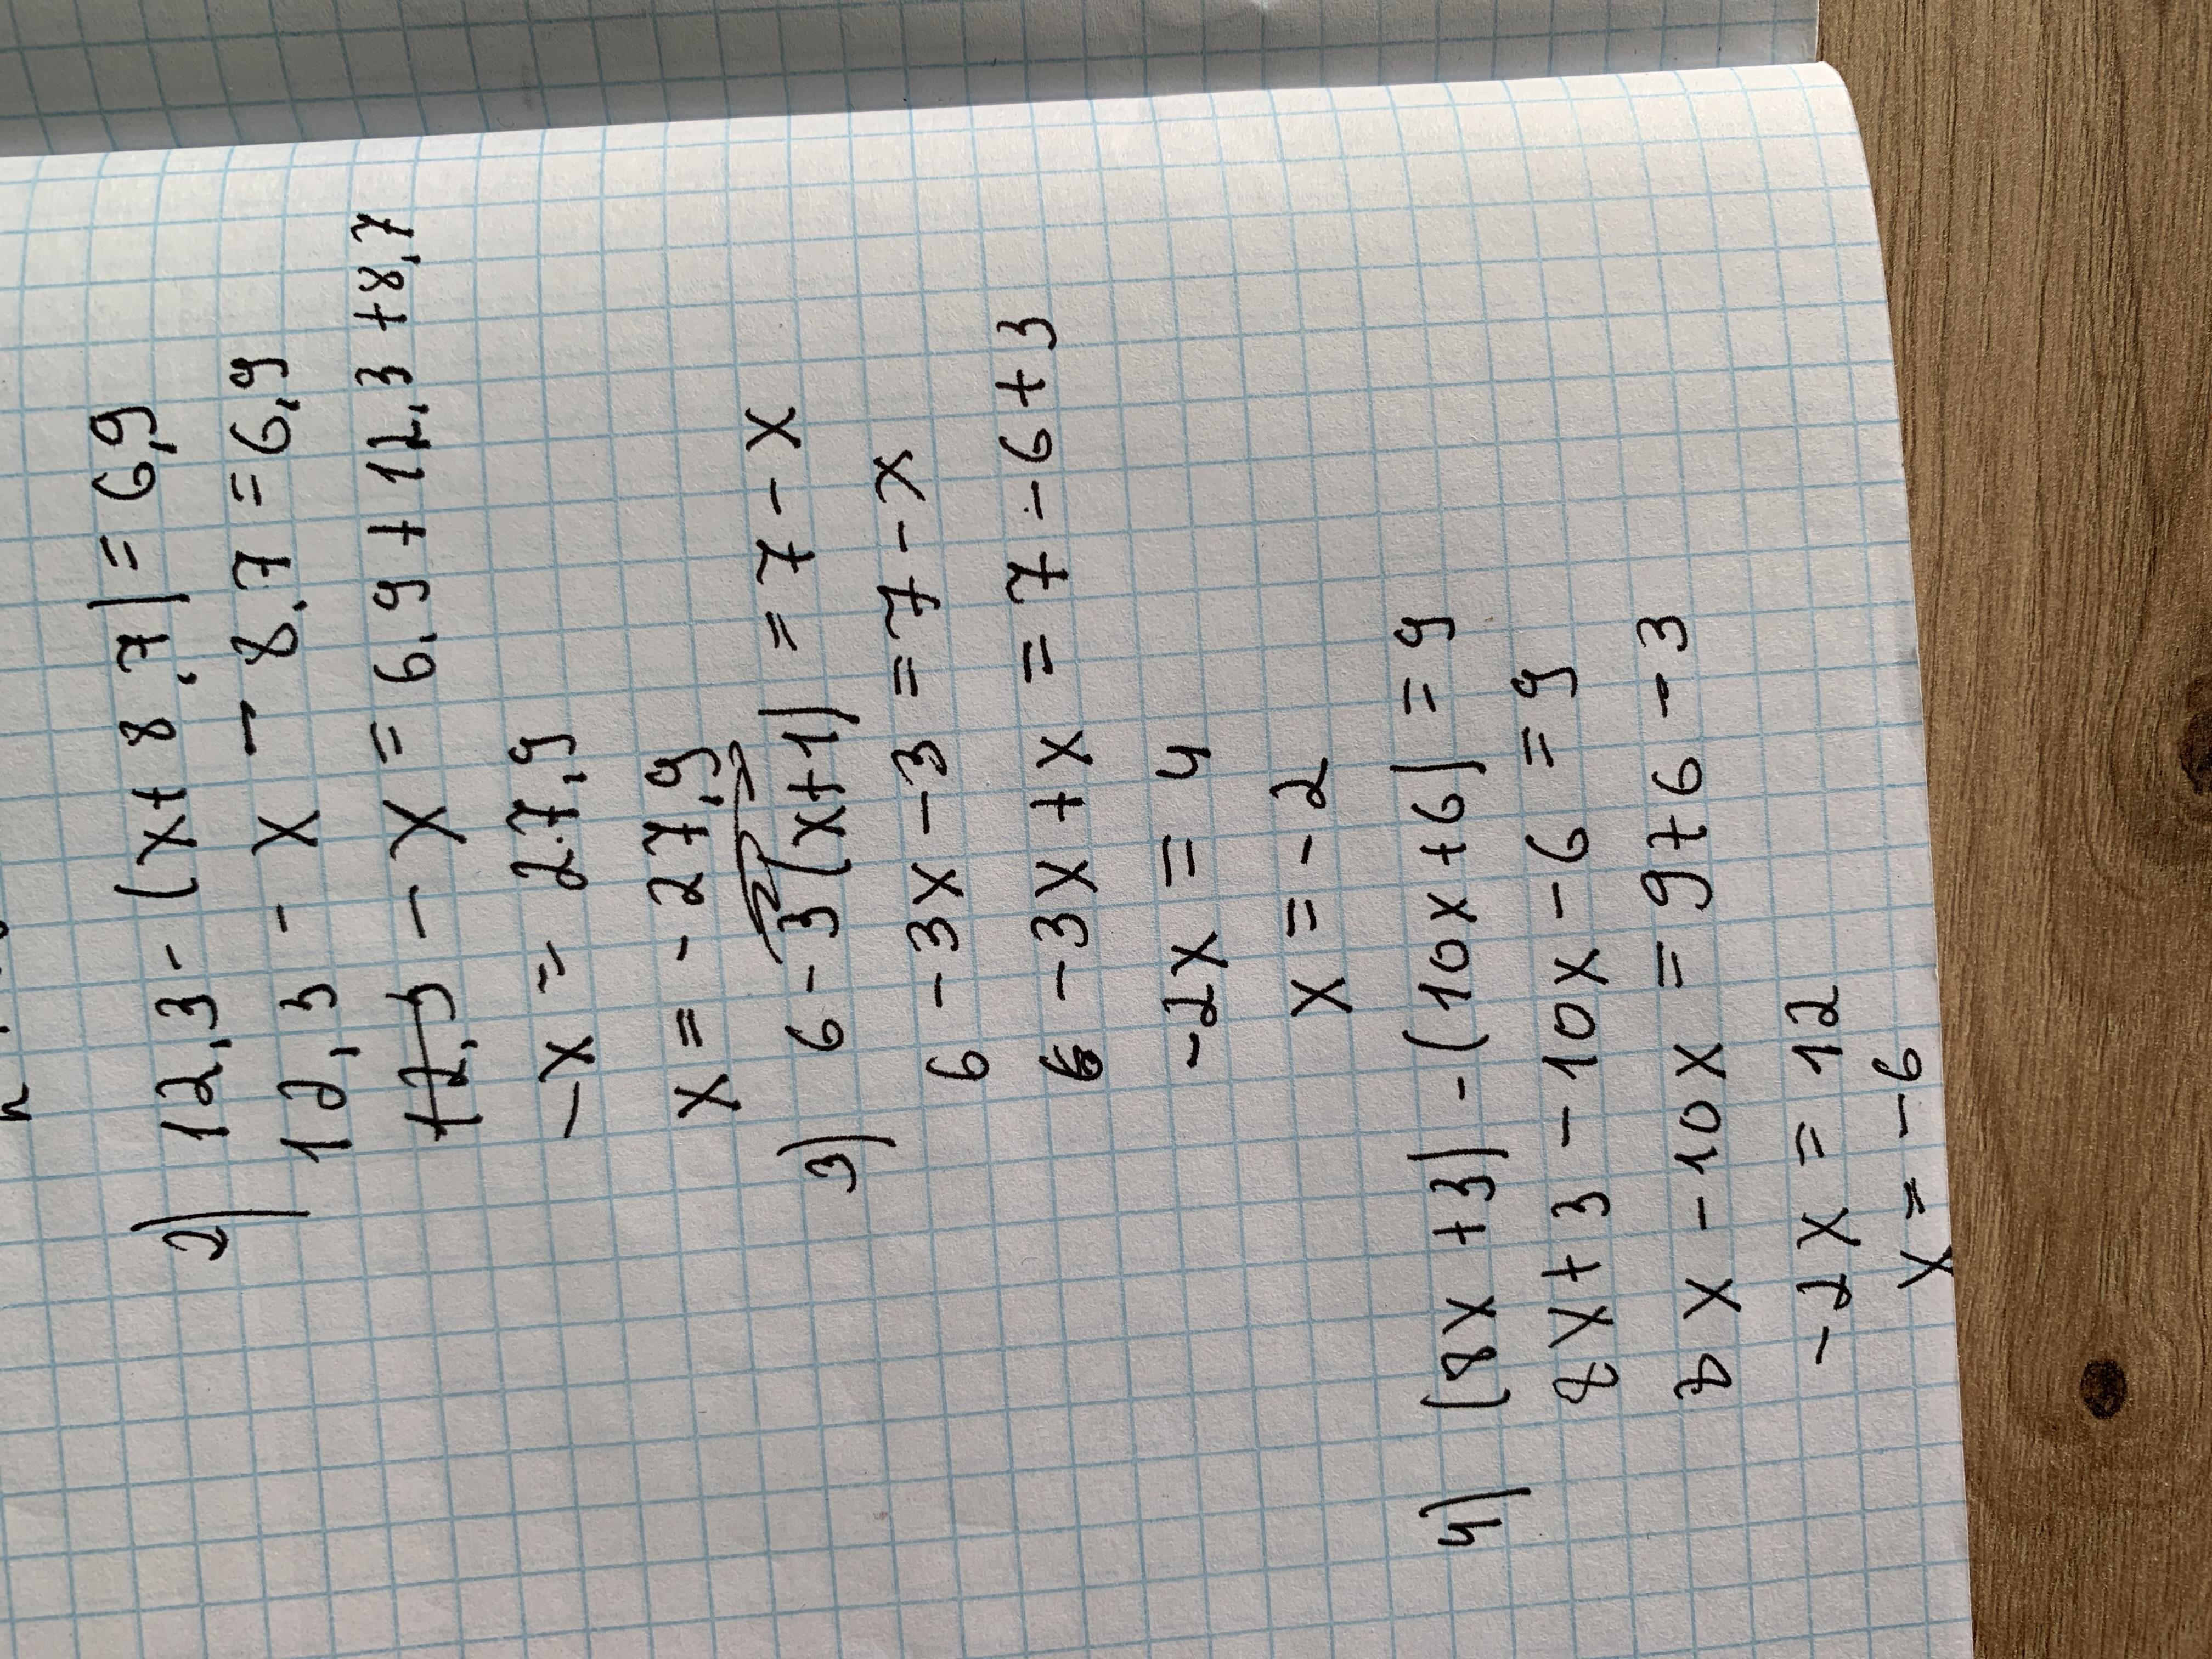 2) 12,3 - (x + 8,7) = 6,9
12,3 - x - 8,7 = 6,9
12,3 - x = 6,9 + 12,3 + 8,7
-x = 27,9
x = -27,9
3) 6 - 3(x+1) = 7 - x
6 - 3x - 3 = 7 - x
6 - 3x + x = 7 - 6 + 3
-2x = 4
x = -2
4) (8x + 3) - (10x + 6) = 9
8x + 3 - 10x - 6 = 9
8x - 10x = 9 + 6 - 3
-2x = 12
x = -6